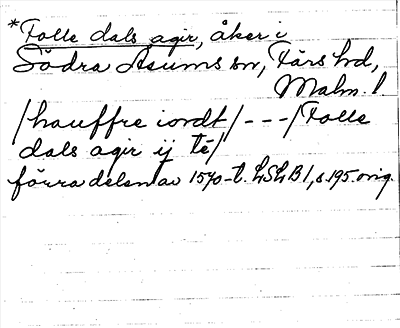 *Folle dals agir, åker i
Södra Åsums sn, Färs hd,
Malm. l.
/hauffre iordt/ - - - /Folle
dals agir ij te/
förra delen av 1570-t. LSLB 1, s. 195. orig.